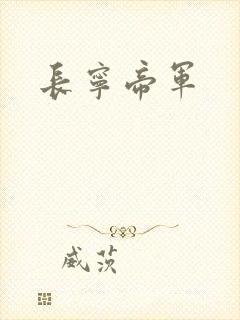 長寧帝軍
威茨